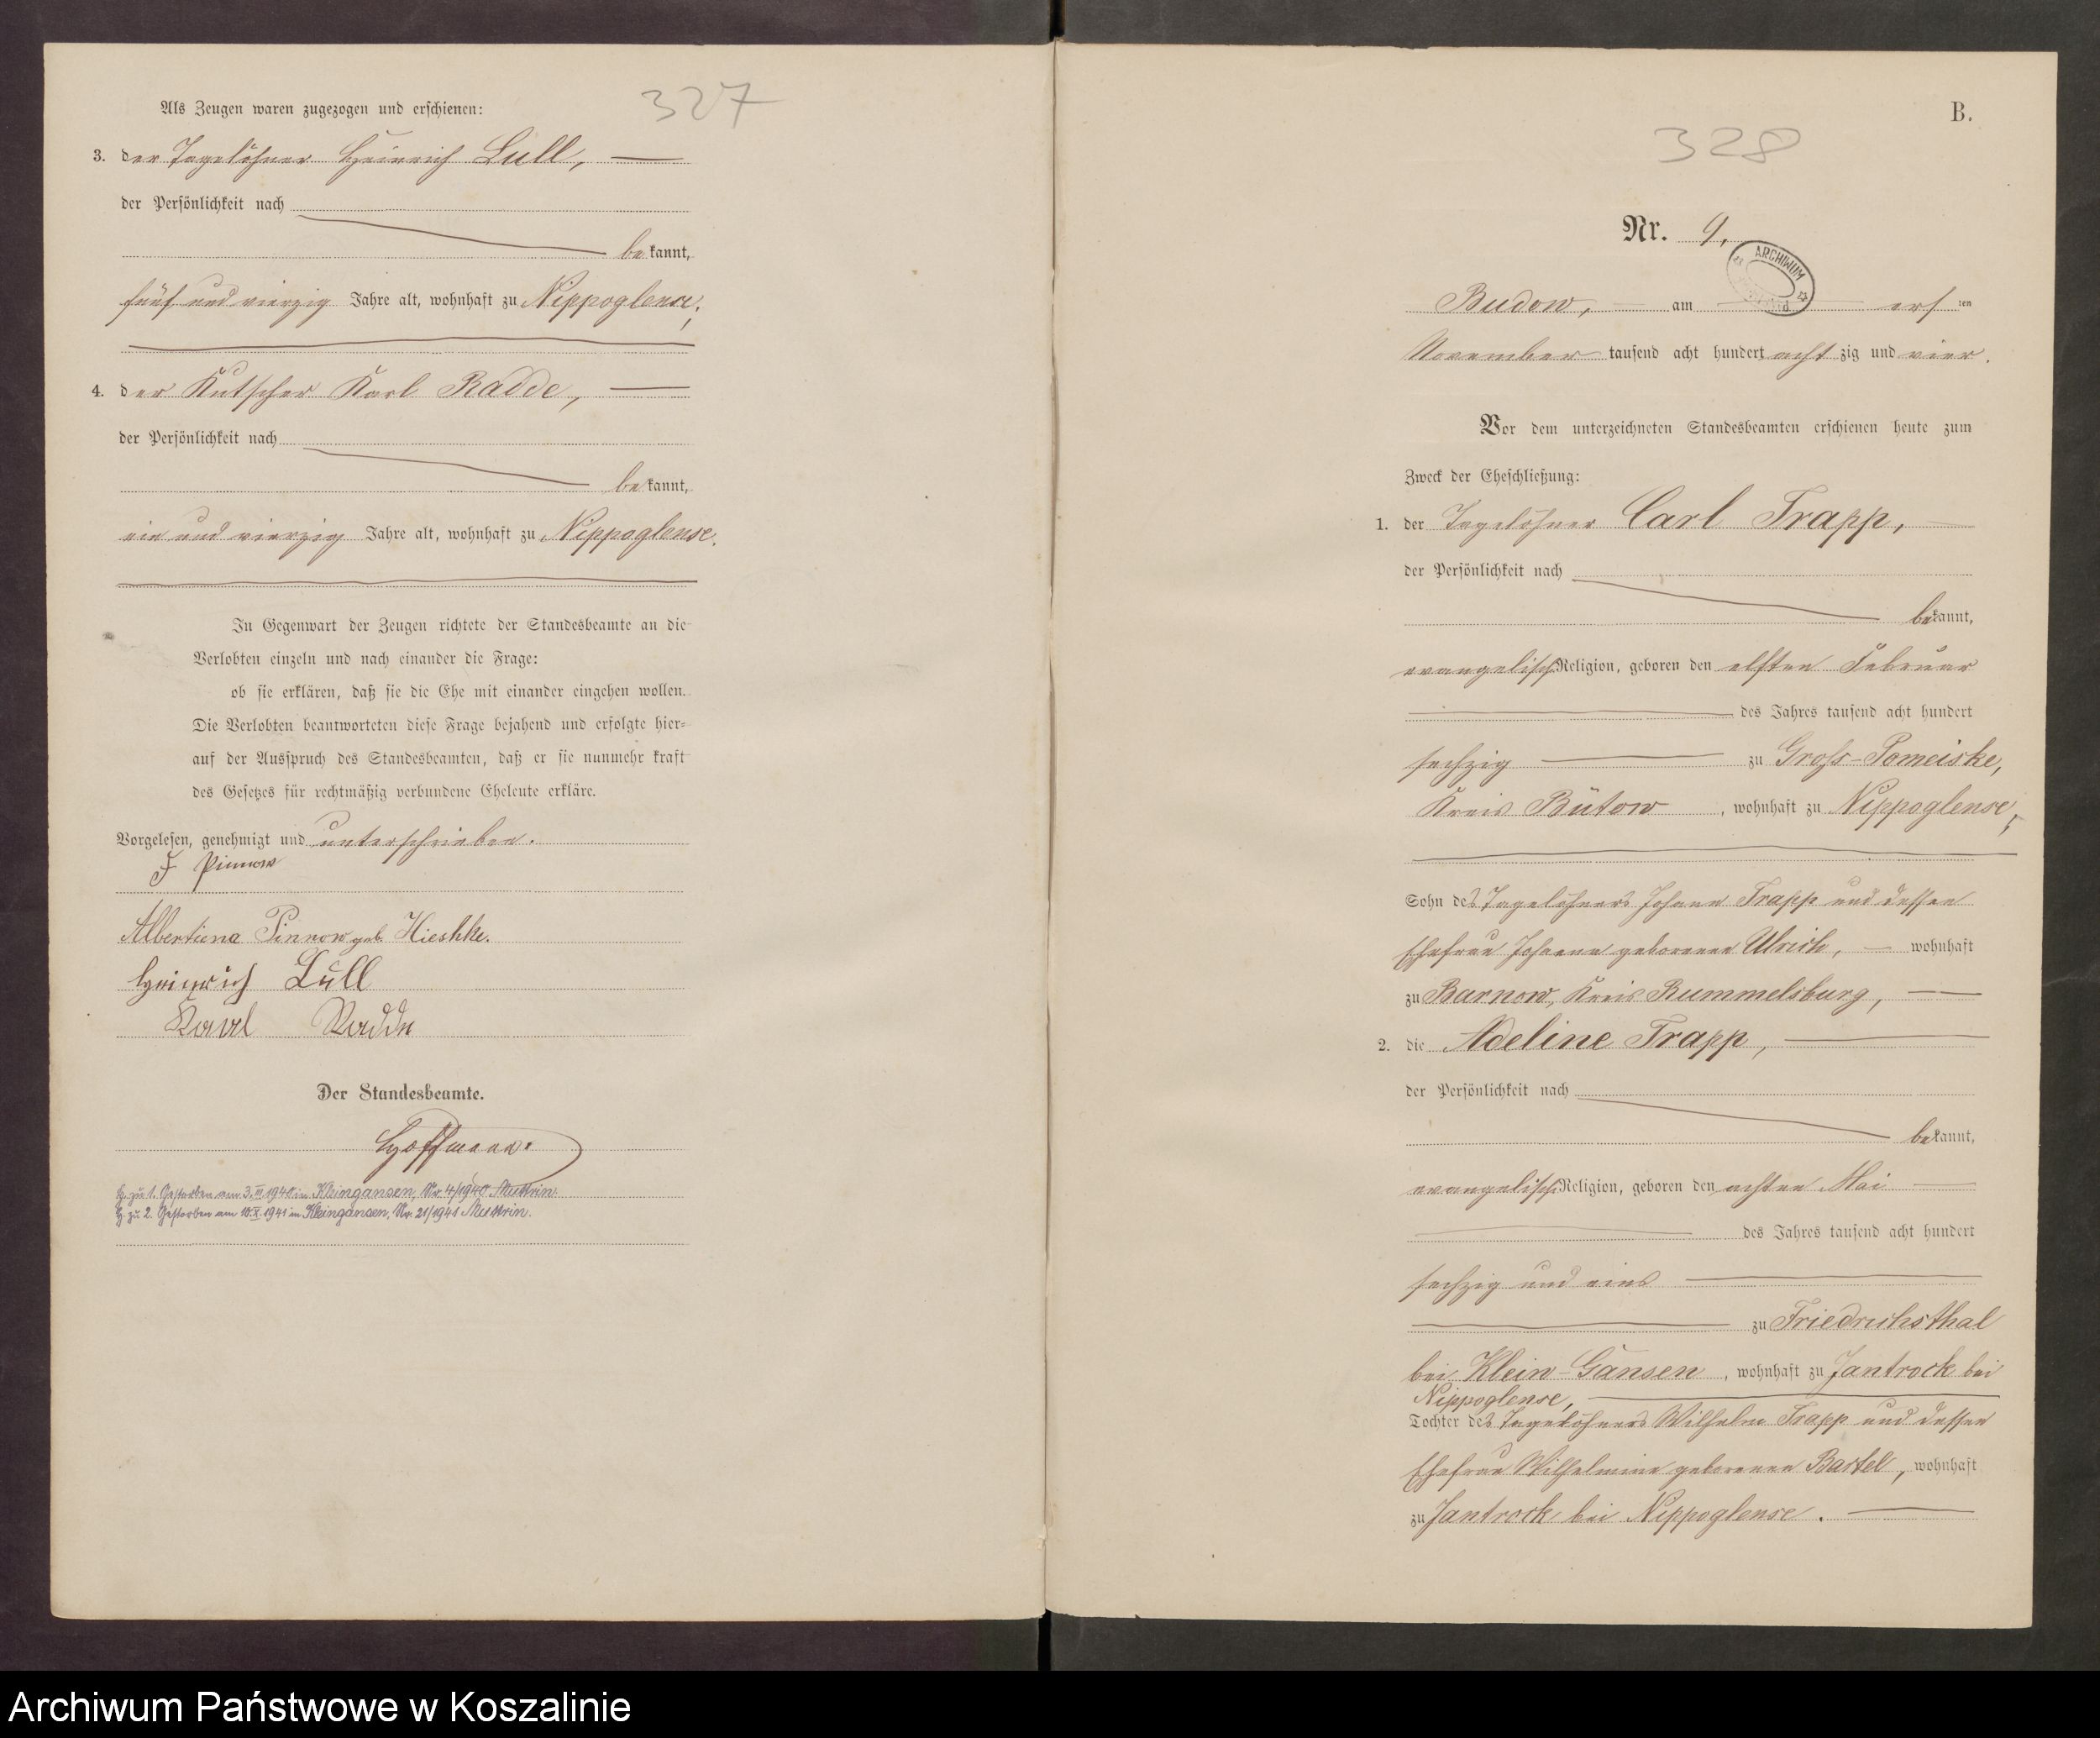 327
Als Zeugen waren zugezogen und erschienen:
3. der Tagelöhner Heinrich Lüll,
der Persönlichkeit nach
bekannt,
fünf und vierzig Jahre alt, wohnhaft zu Nippoglense;
4. der Kutscher Karl Radde,
der Persönlichkeit nach
bekannt,
ein und vierzig Jahre alt, wohnhaft zu Nippoglense.
In Gegenwart der Zeugen richtete der Standesbeamte an die
Verlobten einzeln und nach einander die Frage:
ob sie erklären, daß sie die Ehe mit einander eingehen wollen.
Die Verlobten beantworteten diese Frage bejahend und erfolgte hier-
auf der Ausspruch des Standesbeamten, daß er sie nunmehr kraft
des Gesetzes für rechtmäßig verbundene Eheleute erkläre.
Vorgelesen, genehmigt und unterschrieben.
F Pinnow
Albertiena Pinnow geb. Hieshke.
Heinrich Lüll
Karl Radde
Der Standesbeamte.
Hoffmann.
H. zu 1. Gestorben am 3.VI.1940 in Kleingansen, Nr. 4/1940 Muttrin.
H. zu 2. Gestorben am 10.X.1941 in Kleingansen, Nr. 21/1941 Muttrin.
B.
328
Nr. 9.
ARCHIWUM
Budow, am ersten
November tausend acht hundert achtzig und vier.
Vor dem unterzeichneten Standesbeamten erschienen heute zum
Zweck der Eheschließung:
1. der Tagelöhner Carl Trapp,
der Persönlichkeit nach
bekannt,
evangelisch Religion, geboren den elften Februar
des Jahres tausend acht hundert
sechzig zu Groß-Pomeiske,
Kreis Bütow, wohnhaft zu Nippoglense,
Sohn des Tagelöhners Johann Trapp und dessen
Ehefrau Johanne geborenen Ulrich, wohnhaft
zu Barnow, Kreis Rummelsburg,
2. die Adeline Trapp,
der Persönlichkeit nach
bekannt,
evangelisch Religion, geboren den achten Mai
des Jahres tausend acht hundert
sechzig und eins
zu Friedrichsthal
bei Klein-Gansen, wohnhaft zu Jantrock bei
Nippoglense,
Tochter des Tagelöhners Wilhelm Trapp und dessen
Ehefrau Wilhelmine geborenen Bartel, wohnhaft
zu Jantrock bei Nippoglense.
Archiwum Państwowe w Koszalinie